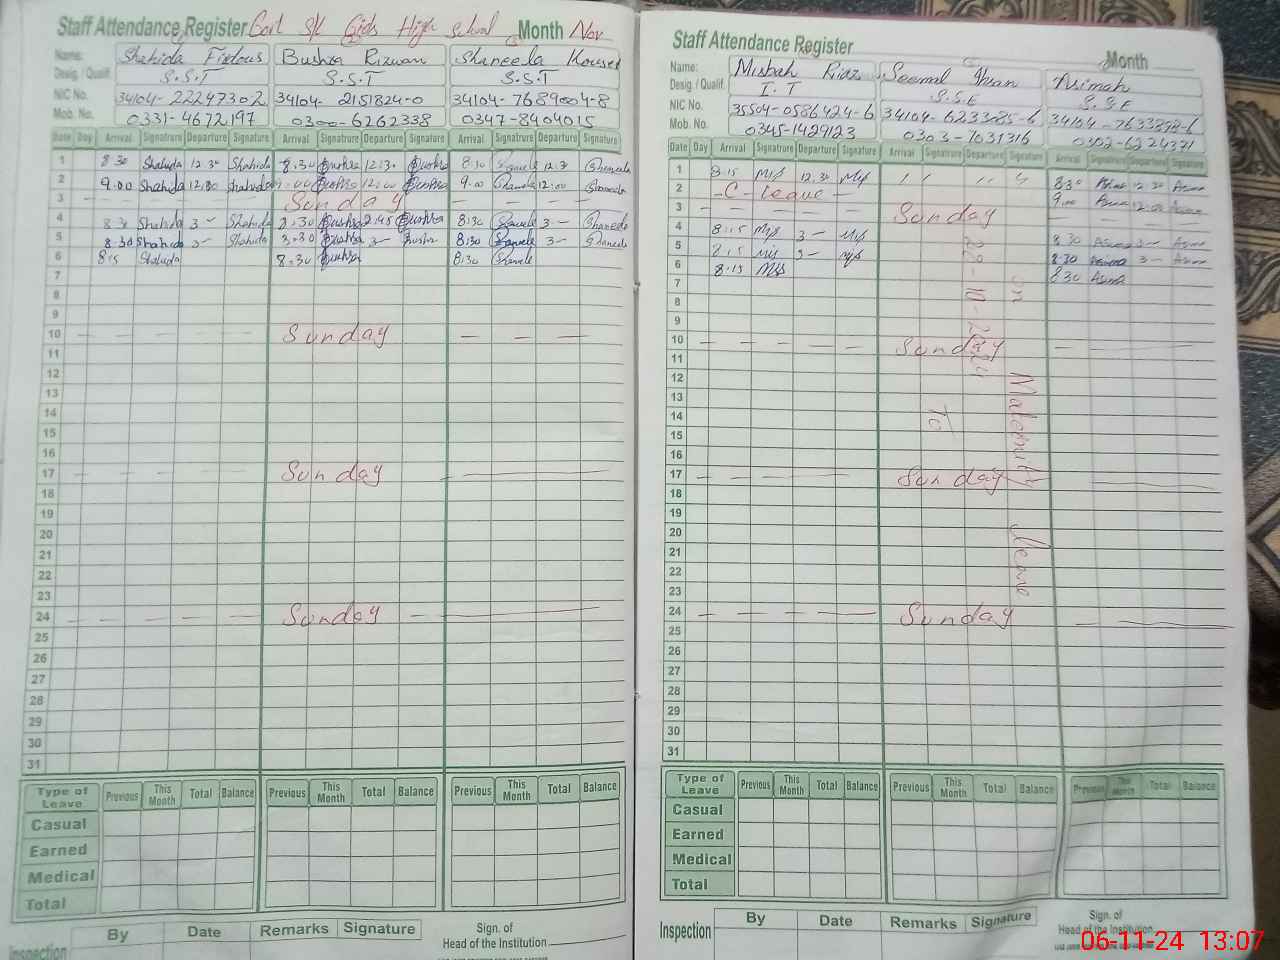 Staff Attendance Register Govt S/K Girls High School Month Nov
Name: Shahida Firdous Bushra Rizwan Shaneela Kousar
Desig. / Qualif. S.S.T S.S.T S.S.T
NIC No. 34104-22247302 34104-2151824-0 34104-7689004-8
Mob. No. 0331-4672197 0300-6262338 0347-8404015
Date Day Arrival Signatrure Departure Signature Arrival Signatrure Departure Signature Arrival Signatrure Departure Signature
1 8 30 Shahida 12 30 Shahida 8.30 Bushra 12:30 Bushra 8:30 12.30 Shaneela
2 9.00 Shahida 12:00 Shahida 9:00 Bushra 12:00 Bushra 9.00 12:00 Shaneela
3 Sunday
4 8.30 Shahida 3- Shahida 8.30 Bushra 2:45 Bushra 8:30 3- Shaneela
5 8.30 Shahida 3- Shahida 8.30 Bushra 3- Bushra 8:30 3- Shaneela
6 8:15 Shahida 8.30 Bushra 8:30
7
8
9
10 Sunday
11
12
13
14
15
16
17 Sunday
18
19
20
21
22
23
24 Sunday
25
26
27
28
29
30
31
Type of Leave Previous This Month Total Balance Previous This Month Total Balance Previous This Month Total Balance
Casual
Earned
Medical
Total
Inspection By Date Remarks Signature Sign. of
Head of the Institution
Staff Attendance Register Month
Name: Misbah Riaz Seemal Irfan Asimah
Desig. / Qualif. I.T S.S.E S.S.E
NIC No. 35504-0586424-6 34104-6233085-6 34104-7633898-6
Mob. No. 0345-1429123 0303-7031316 0302-6224371
Date Day Arrival Signatrure Departure Signature Arrival Signatrure Departure Signature Arrival Signatrure Departure Signature
1 8.15 Mis 12.30 Mis 8 30 12 30
2 -C- Leave - 9.00 12:00
3 Sunday
4 8:15 Mis 3- Mis 8 30 Asima 3-
5 8:15 Mis 3- Mis 8.30 Asima 3-
6 8.15 Mis 8 30 Asima
7
8
9
10 Sunday
11
12
13
14
15
16
17 Sunday
18
19
20
21
22
23
24 Sunday
25
26
27
28
29
30
31
on Maternity Leave
22-10-2024
To
Type of Leave Previous This Month Total Balance Previous This Month Total Balance Previous This Month Total Balance
Casual
Earned
Medical
Total
Inspection By Date Remarks Signature Sign. of
Head of the Institution
06-11-24 13:07